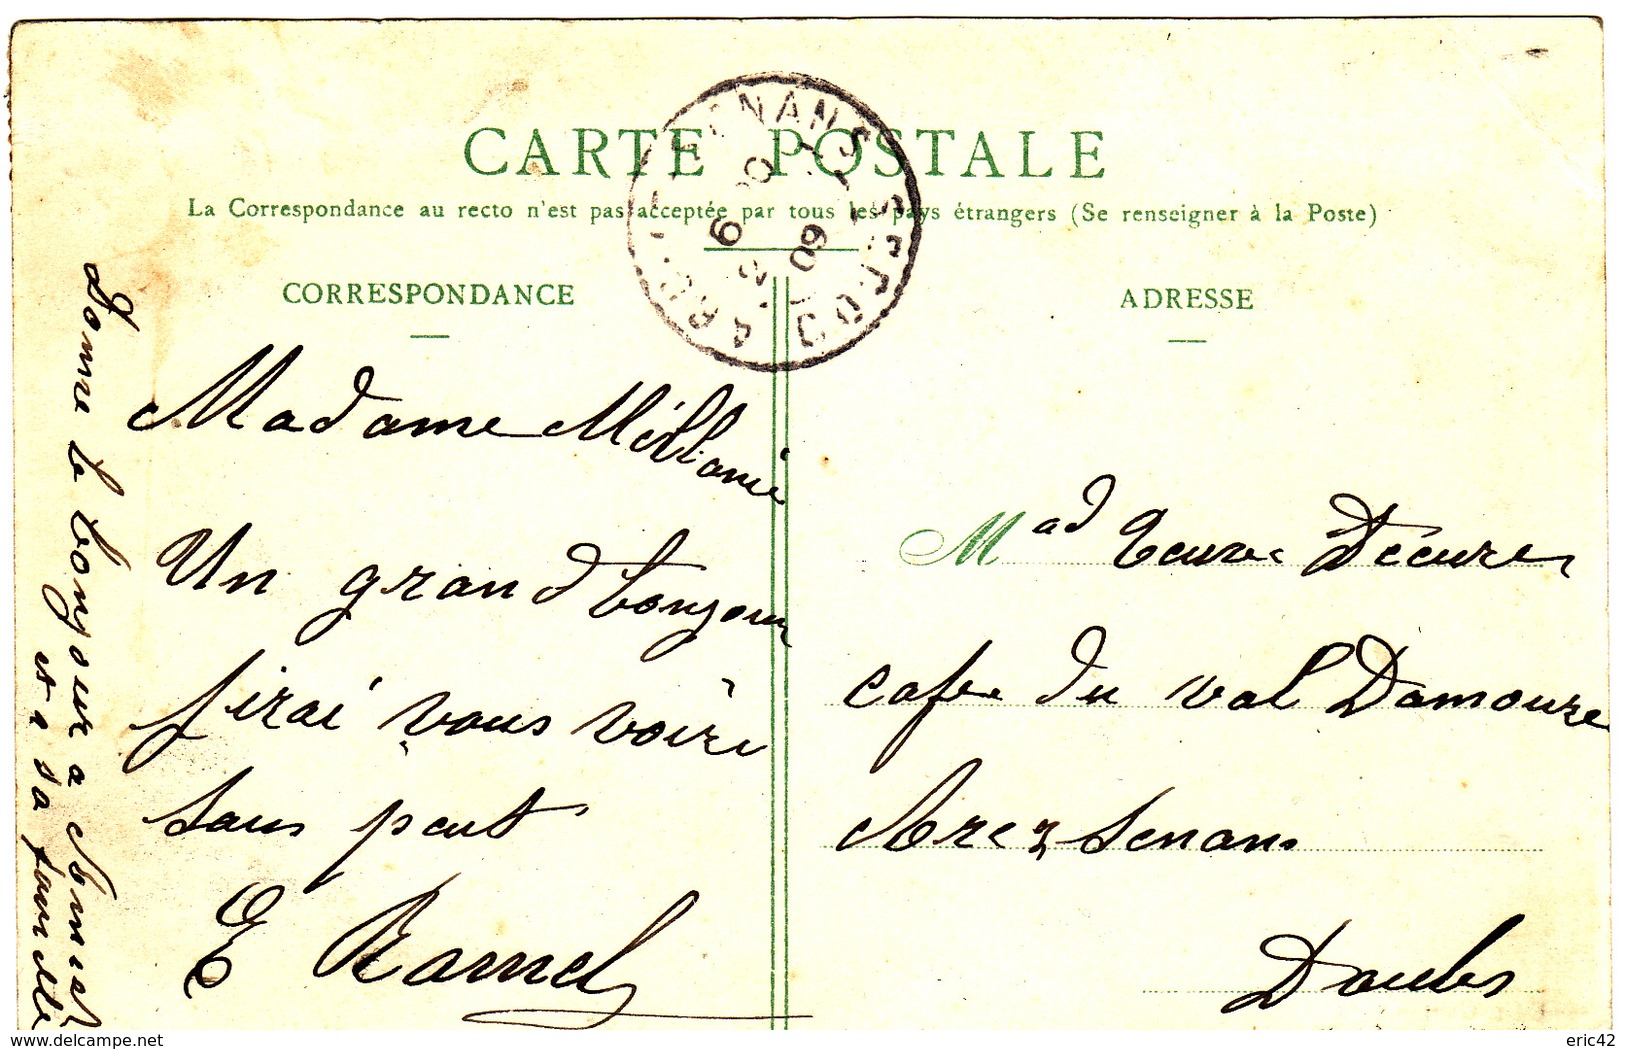 CARTE POSTALE
La Correspondance au recto n'est pas acceptée par tous les pays étrangers (Se renseigner à la Poste)
CORRESPONDANCE
Madame Méllanie
Un grand bonjour
j'irai vous voire
sans peut
E Ramel
Donne le bonjour a
et a sa famille
ADRESSE
Mad Veuve Décure
Cafe du val Damoure
Arc z Senans
Doubs
www.delcampe.net
eric42